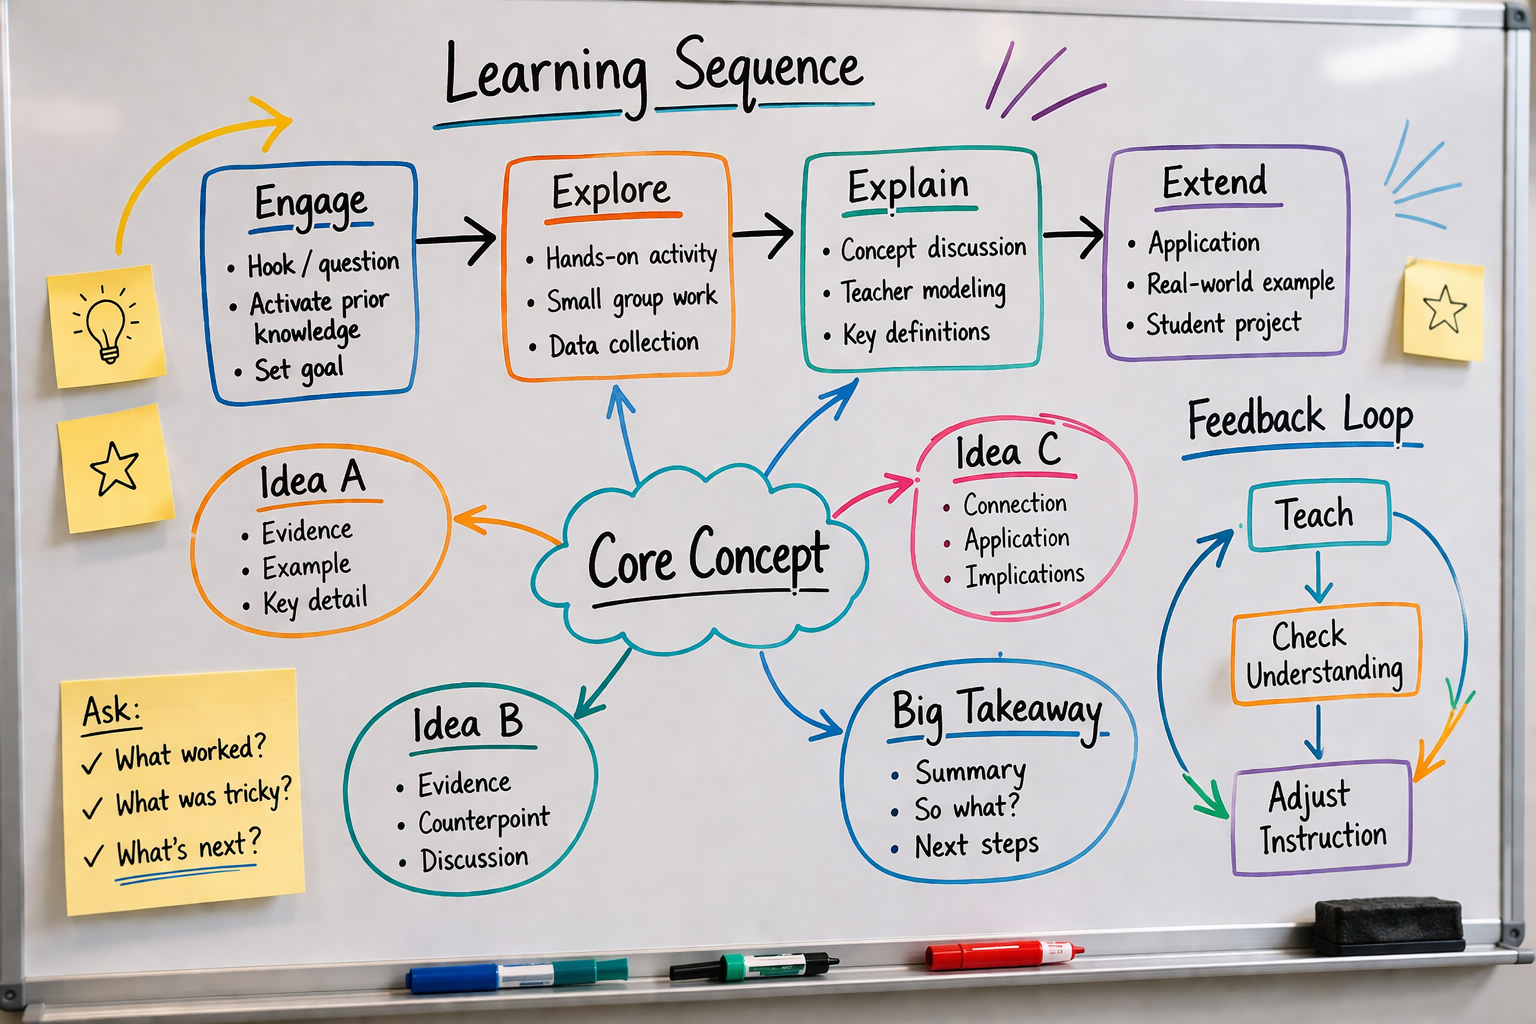 Learning Sequence
Engage
• Hook / question
• Activate prior
knowledge
• Set goal
Explore
• Hands-on activity
• Small group work
• Data collection
Explain
• Concept discussion
• Teacher modeling
• Key definitions
Extend
• Application
• Real-world example
• Student project
Idea A
• Evidence
• Example
• Key detail
Core Concept
Idea C
• Connection
• Application
• Implications
Idea B
• Evidence
• Counterpoint
• Discussion
Big Takeaway
• Summary
• So what?
• Next steps
Feedback Loop
Teach
Check
Understanding
Adjust
Instruction
Ask:
✓ What worked?
✓ What was tricky?
✓ What's next?